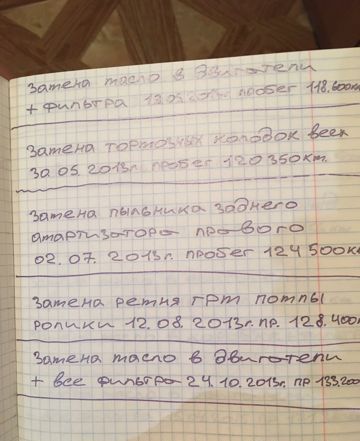 Замена масло в двиготели
+ фильтра пробег 118.600км
Замена тормозных колодок всех
30.05.2013г. пробег 120350км.
Замена пыльника заднего
амартизатора правого
02.07.2013г. пробег 124500км
Замена ремня грм помпы
ролики 12.08.2013г. пр. 128.400
Замена масло в двиготели
+ все фильтра 24.10.2013г. пр 133.200